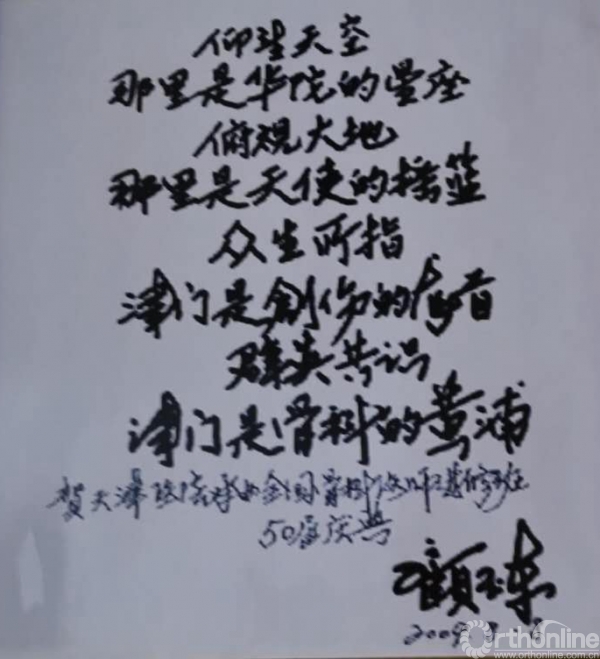 仰望天空
那里是华佗的星座
俯观大地
那里是天使的摇篮
众生所指
津门是創伤的
群英共识
津门是骨科的黄浦
贺天津医院承办全国骨科医师进修班
50届庆典
顾玉东
2009
Orthonline
www.orthonline.com.cn